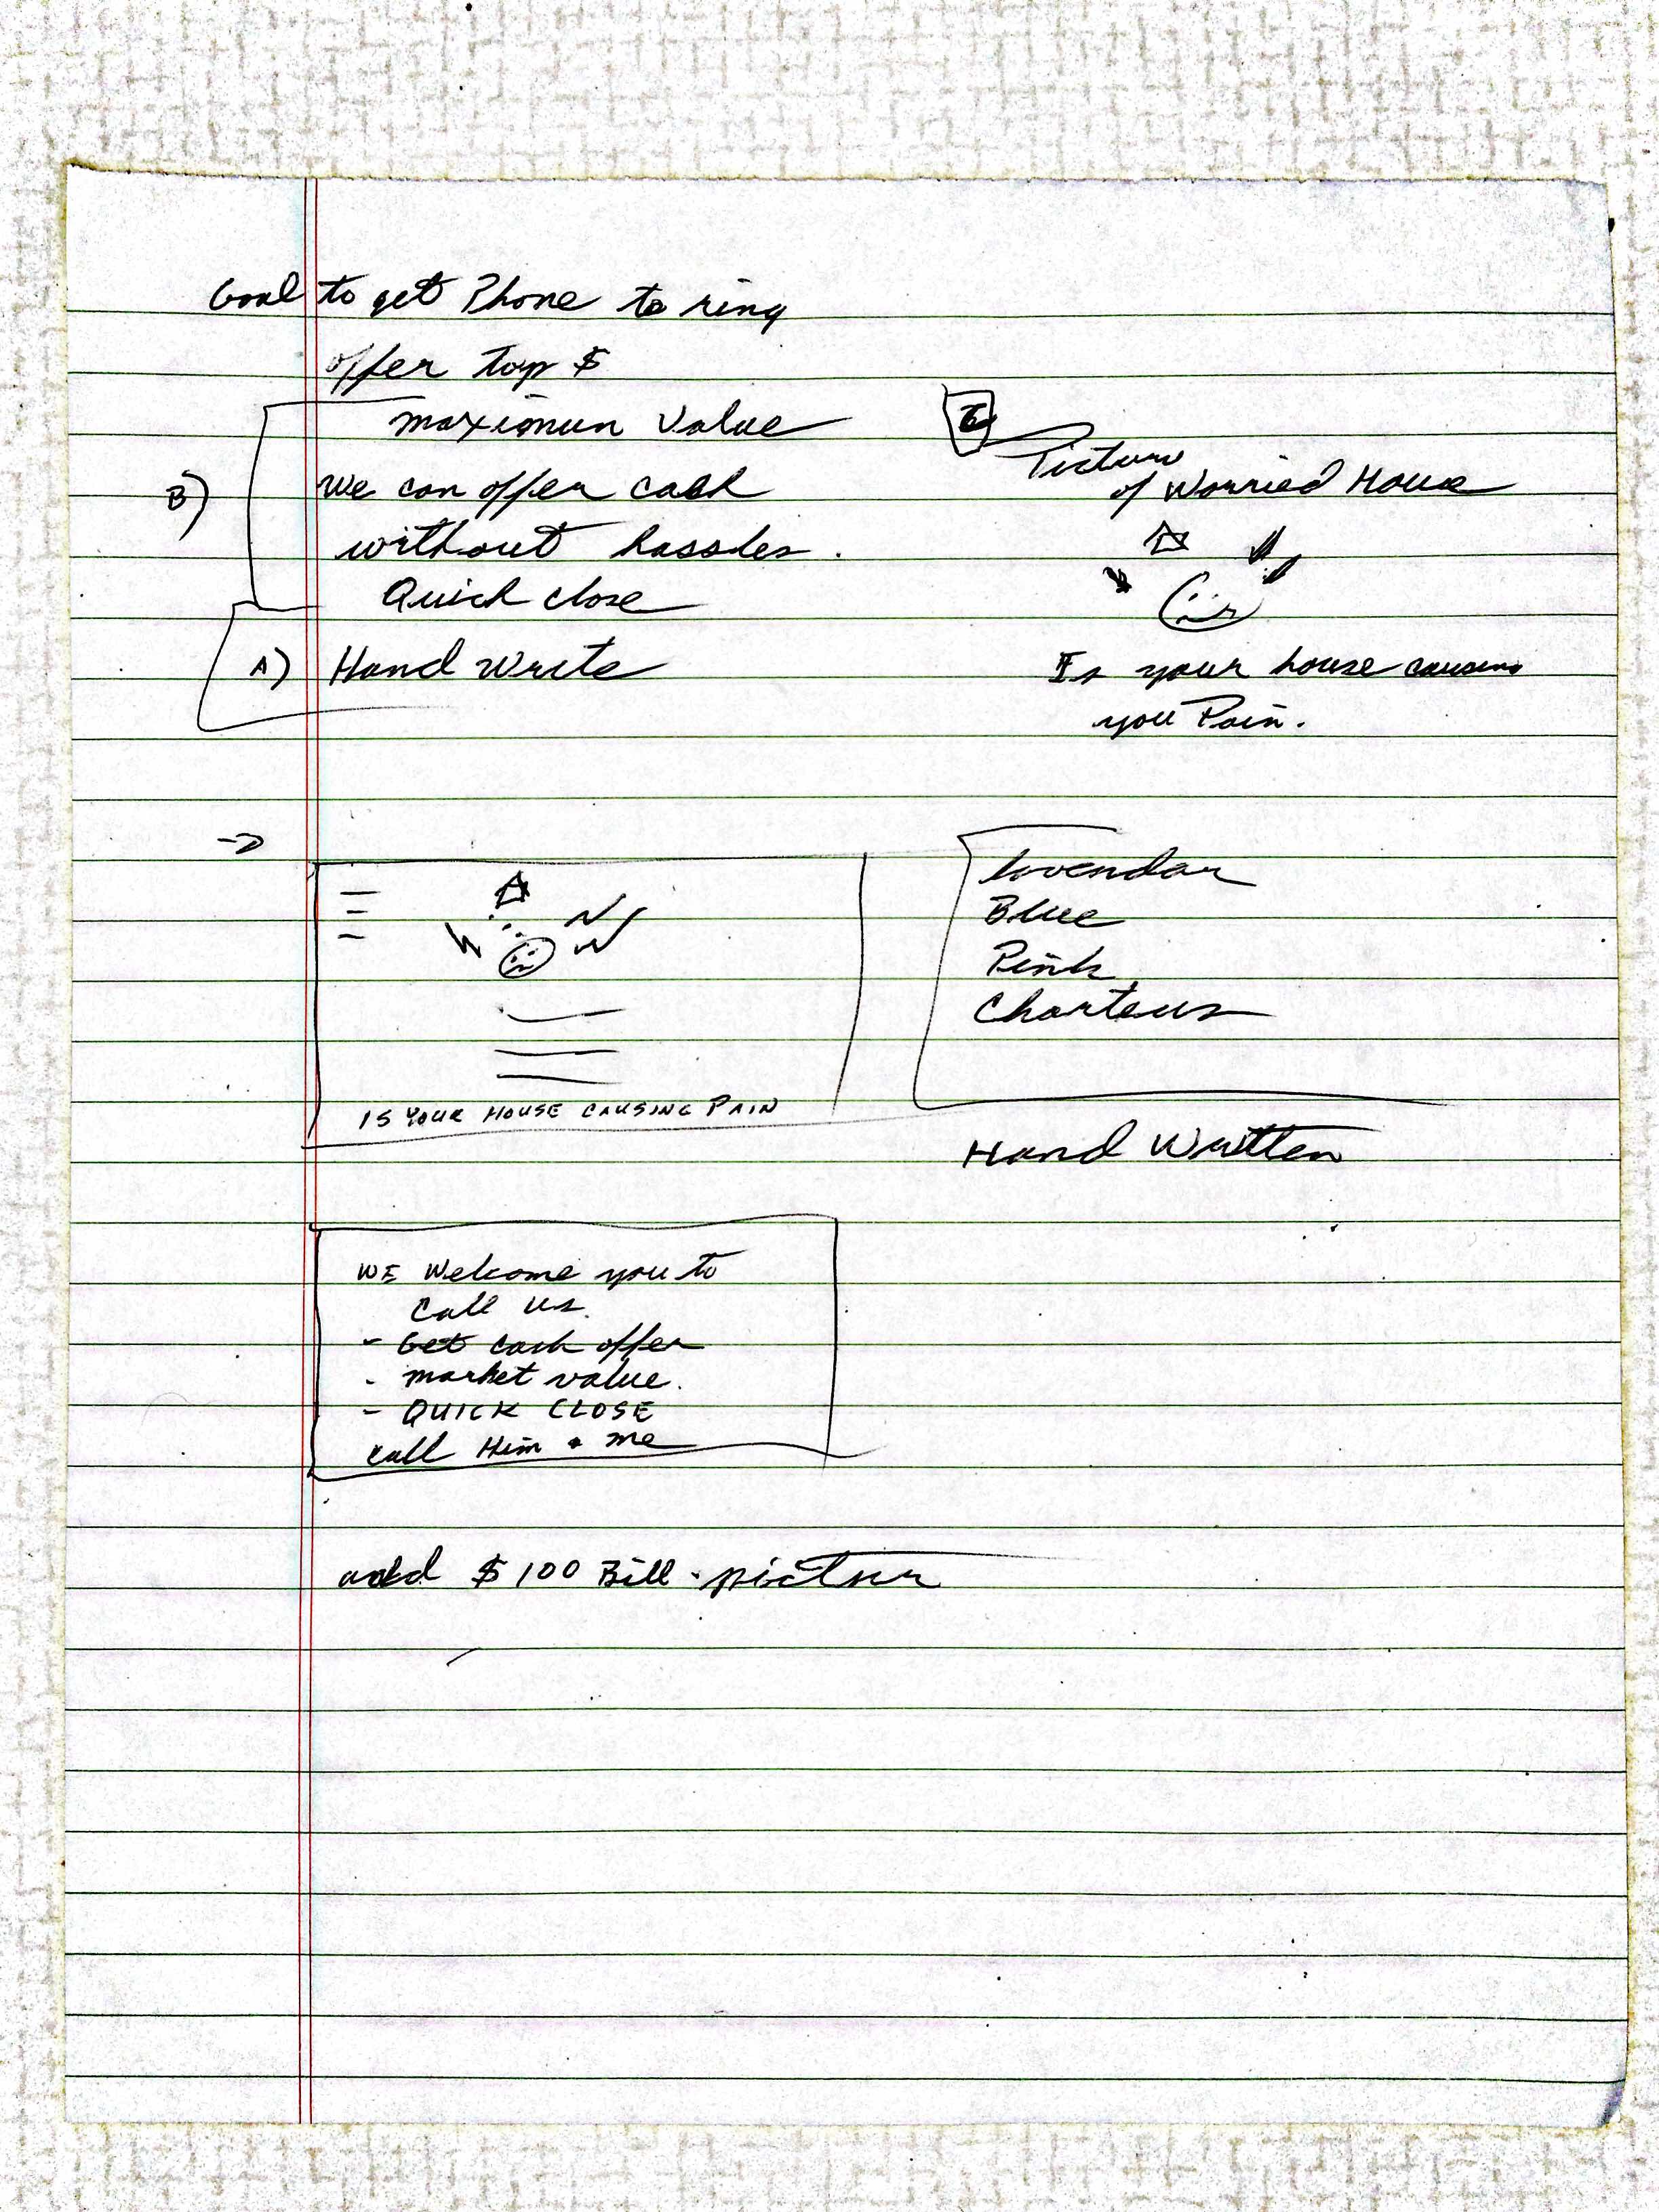 Goal to get Phone to ring
offer top $
maximun Value
B) We can offer cash
without hassles.
Quick close
A) Hand Write
Picture
of Worried House
Is your house causing
you Pain.
IS YOUR HOUSE CAUSING PAIN
lavendar
Blue
Pink
Charteus
Hand Written
WE Welcome you to
Call us.
- Get cash offer
- market value.
- QUICK CLOSE
call Him + me
add $100 Bill - picture